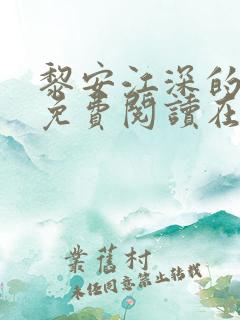 黎安江深的
免費閱讀在
業舊村
未经同意禁止转载